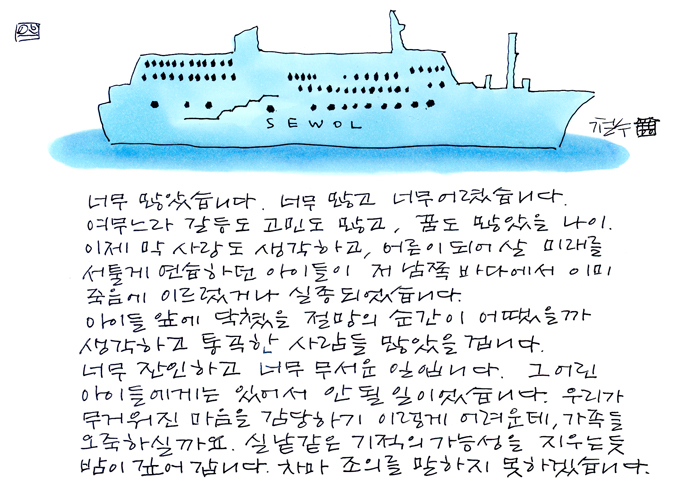 SEWOL
너무 많았습니다. 너무 많고 너무 어렸습니다.
여무느라 갈등도 고민도 많고, 꿈도 많았을 나이.
이제 막 사랑도 생각하고, 어른이 되어 살 미래를
서툴게 연습하던 아이들이 저 남쪽 바다에서 이미
죽음에 이르렀거나 실종되었습니다.
아이들 앞에 닥쳤을 절망의 순간이 어땠을까
생각하고 통곡한 사람들 많았을 겁니다.
너무 잔인하고 너무 무서운 일입니다. 그 어린
아이들에게는 있어서 안 될 일이었습니다. 우리가
무거워진 마음을 감당하기 이렇게 어려운데, 가족들
오죽하실까요. 실낱같은 기적의 가능성을 지우는듯
밤이 깊어 갑니다. 차마 조의를 말하지 못하겠습니다.